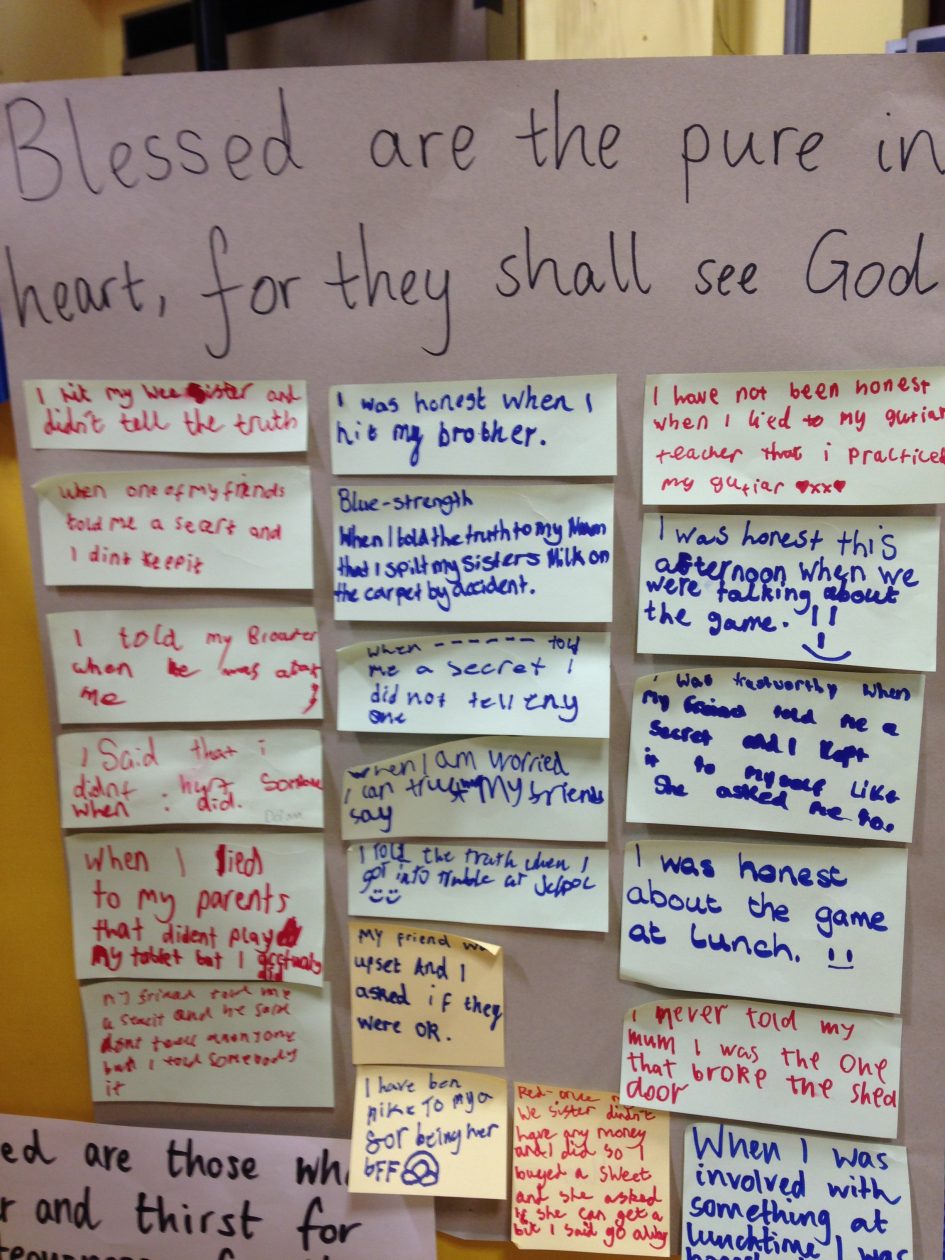 Blessed are the pure in
heart, for they shall see God
I hit my wee sister and
didn't tell the truth
when one of my friends
told me a seart and
I dint keepit
I told my Broater
when he was
me
I Said that i
didnt hurt
when i did.
When I lied
to my parents
that dident play
My tablet but I
my friend told me
a and he said
dont tell
but I told somebody
it
I was honest when I
hit my brother.
Blue-strength
When I told the truth to my Mum
that I spilt my sisters Milk on
the carpet by accident.
when ------ told
me a secret I
did not tell eny
one
when I am worried
I can my friends
say
I told the truth when I
got into trouble at
My friend
upset And I
asked if they
were OK.
I have ben
To my
for being her
BFF
Red-once
We sister didn't
have any money
and I did so I
buyed a sweet
and she asked
if she can get a
but I said go away
I have not been honest
when I lied to my gutiar
teacher that i practice
my gutiar xx
I was honest this
afternoon when we
were talking about
the game.
I was trastworthy when
my friend told me a
secret and I kept
it to myself like
She asked me to.
I was honest
about the game
at Lunch.
I never told my
mum I was the one
that broke the shed
door
When I was
involved with
something at
lunchtime I was
ed are those
r and thirst for